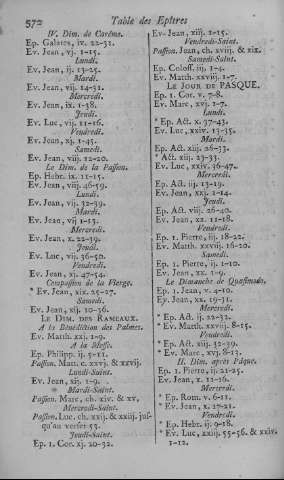 572 Table des Epîtres
IV. Dim. de Carême.
Ep. Galates, iv. 22-31.
Ev. Jean, vj. 1-15.
Lundi.
Ev. Jean, ij. 13-25.
Mardi.
Ev. Jean, vij. 14-31.
Mercredi.
Ev. Jean, ix. 1-38.
Jeudi.
Ev. Luc, vij. 11-16.
Vendredi.
Ev. Jean, xj. 1-45.
Samedi.
Ev. Jean, viij. 12-20.
Le Dim. de la Passion.
Ep. Hebr. ix. 11-15.
Ev. Jean, viij. 46-59.
Lundi.
Ev. Jean, vij. 32-39.
Mardi.
Ev. Jean, vij. 1-13.
Mercredi.
Ev. Jean, x. 22-39.
Jeudi.
Ev. Luc, vij. 36-50.
Vendredi.
Ev. Jean, xj. 47-54.
Compassion de la Vierge.
* Ev. Jean, xix. 25-27.
Samedi.
Ev. Jean, xij. 10-36.
Le Dim. des Rameaux.
A la Bénédiction des Palmes.
Ev. Matth. xxj. 1-9.
A la Messe.
Ep. Philipp. ij. 5-11.
Passion, Matt. c. xxvj. & xxvij.
Lundi-Saint.
Ev. Jean, xij. 1-9.
Mardi-Saint.
Passion, Marc, ch. xiv. & xv.
Mercredi-Saint.
Passion, Luc, ch. xxij. & xxiij. jus-
qu'au verset 53.
Jeudi-Saint.
Ep. 1. Cor. xj. 20-32.
Ev. Jean, xiij. 1-15.
Vendredi-Saint.
Passion, Jean, ch. xviij. & xix.
Samedi-Saint.
Ep. Coloss. iij. 1-4.
Ev. Matth. xxviij. 1-7.
Le Jour de PASQUE.
Ep. 1. Cor. v. 7-8.
Ev. Marc, xvj. 1-7.
Lundi.
* Ep. Act. x. 37-43.
Ev. Luc, xxiv. 13-35.
Mardi.
Ep. Act. xiij. 26-33.
* Act. xiij. 23-33.
Ev. Luc, xxiv. 36-47.
Mercredi.
Ep. Act. iij. 13-19.
Ev. Jean, xxj. 1-14.
Jeudi.
Ep. Act. viij. 26-40.
Ev. Jean, xx. 11-18.
Vendredi.
Ep. 1. Pierre, iij. 18-22.
Ev. Matth. xxviij. 16-20.
Samedi.
Ep. 1. Pierre, ij. 1-10.
Ev. Jean, xx. 1-9.
Le Dimanche de Quasimodo.
Ep. 1. Jean, v. 4-10.
Ev. Jean, xx. 19-31.
Mercredi.
* Ep. Act. ij. 22-32.
* Ev. Matth. xxviij. 8-15.
Vendredi.
* Ep. Act. xiij. 32-39.
* Ev. Marc, xvj. 8-13.
II. Dim. après Pâque.
Ep. 1. Pierre, ij. 21-25.
Ev. Jean, x. 11-16.
Mercredi.
* Ep. Rom. v. 6-11.
* Ev. Jean, x. 17-21.
Vendredi.
* Ep. Hebr. ij. 9-18.
* Ev. Luc, xxiij. 55-56. & xxiv.
1-12.